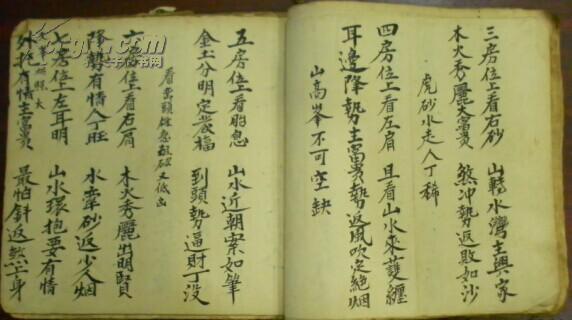 三房位上看右砂 山轉水灣主興家
木火秀麗大富貴 煞冲勢返敗如沙
虎砂水走人丁稀
四房位上看左肩 且看山水來護纏
耳邊降勢主富貴 勢返風吹定絶烟
山高峯不可空缺
五房位上看胎息 山水近朝案如筆
金土分明定發福 到頭勢逼財丁没
看峦頭
六房位上看右肩 木火秀麗出明賢
降勢有情人丁旺 水牽砂返少人烟
七房位上左耳明 山水環抱要有情
外抱有情主富貴 最怕斜返煞上身